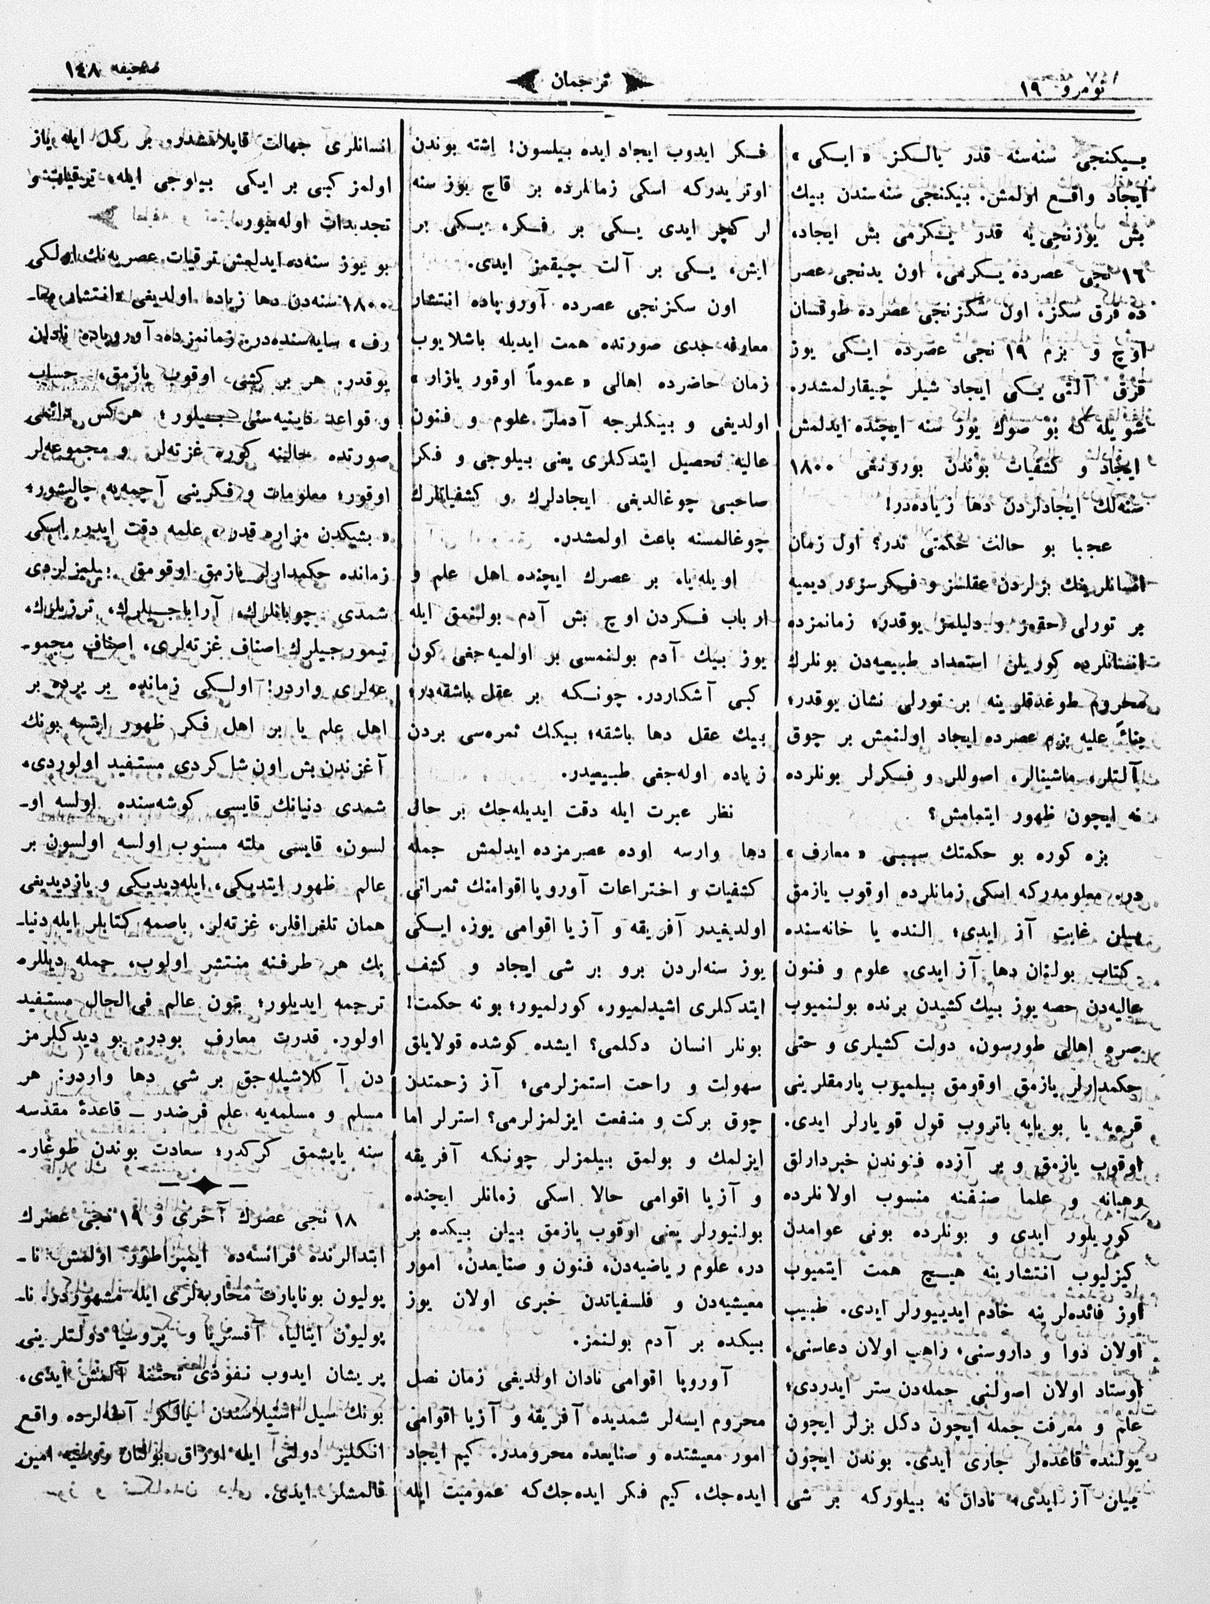 نومرو ۱۹
ترجمان
صحیفه ۱٤۸
بیكنجی سنه‌سنه قدر یالكز « ایكی »
ایجاد واقع اولمش. بیكنجی سنه‌سندن بیك
بش یوزنجی‌یه قدر یكرمی بش ایجاد،
۱٦ نجی عصرده یكرمی، اون یدنجی عصر
ده قرق سكز، اون سكزنجی عصرده طوقسان
اوچ و بزم ۱۹ نجی عصرده ایكی یوز
قرق آلتی یكی ایجاد شیلر چیقارلمشدر.
شویله كه بو صوك یوز سنه ایچنده ایدلمش
ایجاد و كشفیات بوندن بورونغی ۱۸۰۰
سنه‌لك ایجادلردن دها زیاده‌در!
عجبا بو حالت حكمتی ندر؟ اول زمان
انسانلرینك بزلردن عقلسز و فكرسزدر دیمیه
بر تورلی حقمز و دلیلمز یوقدر؛ زمانمزده
انسانلرده كوریلن استعداد طبیعیه‌دن بونلرك
محروم طوغدقلرینه بر تورلی نشان یوقدر؛
بنائً علیه بزم عصرده ایجاد اولنمش بر چوق
آلتلر، ماشینالر، اصوللر و فكرلر بونلرده
نه ایچون ظهور ایتمامش؟
بزه كوره بو حكمتك سببی « معارف »
در. معلومدركه اسكی زمانلرده اوقوب یازمق
بیلن غایت آز ایدی؛ النده یا خانه‌سنده
كتاب بولنان دها آز ایدی. علوم و فنون
عالیه‌دن حصه یوز بیك كشیدن برنده بولنمیوب
صره اهالی طورسون، دولت كشیلری و حتی
حكمدارلر یازمق اوقومق بیلمیوب یارمقلرینی
قره‌یه یا بویایه باتروب قول قویارلر ایدی.
اوقوب یازمق و بر آزده فنوندن خبردارلق
رهبانه و علما صنفنه منسوب اولانلرده
كوریلور ایدی و بونلرده بونی عوامدن
كیزلیوب انتشارینه هیچ همت ایتمیوب
اوز فائده‌لرینه خادم ایدییورلر ایدی. طبیب
اولان دوا و داروسنی، زاهب اولان دعاسنی،
اوستاد اولان اصولنی جمله‌دن ستر ایدردی؛
علم و معرفت جمله ایچون دكل بزلر ایچون
یولنده قاعده‌لر جاری ایدی. بوندن ایچون
بیان آز ایدی. نادان نه بیلوركه بر شی
فكر ایدوب ایجاد ایده بیلسون! اشته بوندن
اوتریدركه اسكی زمانلرده بر قاچ یوز سنه
لر كچر ایدی یكی بر فكر، یكی بر
ایش، یكی بر آلت چیقمز ایدی.
اون سكزنجی عصرده آوروپاده انتشار
معارفه جدی صورتده همت ایدیله باشلایوب
زمان حاضرده اهالی « عموماً اوقور یازار »
اولدیغی و بیكلرجه آدملر علوم و فنون
عالیه تحصیل ایتدكلری یعنی بیلوجی و فكر
صاحبی چوغالدیغی ایجادلرك و كشفیاتلرك
چوغالمسنه باعث اولمشدر.
اویله‌یا، بر عصرك ایچنده اهل علم و
ارباب فكردن اوچ بش آدم بولنمق ایله
یوز بیك آدم بولنمسی بر اولمیه‌جغی كون
كبی آشكاردر. چونكه بر عقل باشقه‌در؛
بیك عقل دها باشقه؛ بیكك ثمره‌سی بردن
زیاده اوله‌جغی طبیعیدر.
نظر عبرت ایله دقت ایدیله‌جك بر حال
دها وارسه اوده عصرمزده ایدلمش جمله
كشفیات و اختراعات آوروپا اقوامنك ثمراتی
اولدیغیدر آفریقه و آزیا اقوامی یوز، ایكی
یوز سنه‌لردن برو بر شی ایجاد و كشف
ایتدكلری اشیدلمیور، كورلمیور؛ بو نه حكمت!
بونلر انسان دكلمی؟ ایشده كوشده قولایلق
سهولت و راحت استمزلرمی؛ آز زحمتدن
چوق بركت و منفعت ایزلمزلرمی؟ استرلر اما
ایزلمك و بولمق بیلمزلر چونكه آفریقه
و آزیا اقوامی حالا اسكی زمانلر ایچنده
بولنیورلر یعنی اوقوب یازمق بیلن بیكده بر
در، علوم ریاضیه‌دن، فنون و صنایعدن، امور
معیشیه‌دن و فلسفیاتدن خبری اولان یوز
بیكده بر آدم بولنمز.
آوروپا اقوامی نادان اولدیغی زمان نصل
محروم ایسه‌لر شمدیده آفریقه و آزیا اقوامی
امور معیشتده و صنایعده محرومدر. كیم ایجاد
ایده‌جك، كیم فكر ایده‌جك‌كه عمومیت ایله
انسانلری جهالت قاپلامشدر. بر كل ایله یاز
اولمز كبی بر ایكی بیلوجی ایله ترقیات و
تجدیدات اوله‌میور.
بو یوز سنه‌ده ایدلمش ترقیات عصریه‌نك اولكی
۱۸۰۰ سنه‌دن دها زیاده اولدیغی « انتشار معا-
رف » سایه‌سنده‌در. زمانمزده آوروپاده نادان
یوقدر. هر بر كشی اوقوب یازمق، حساب
و قواعد دینیه‌سنی بیلور؛ هركس دائمی
صورتده حالینه كوره غزته‌لر و مجموعه‌لر
اوقور؛ معلومات و فكرینی آچمه‌یه چالیشور؛
« بشیكدن مزاره قدر » علمه دقت ایدر. اسكی
زمانده حكمدارلر یازمق اوقومق بیلمزلردی
شمدی چوبانلرك، آراباجیلرك، ترزیلرك،
تیمورجیلرك اصناف غزته‌لری، اصناف مجمو-
عه‌لری واردر! اولكی زمانده بر یرده بر
اهل علم یا بر اهل فكر ظهور ایتسه بونك
آغزندن بش اون شاكردی مستفید اولوردی،
شمدی دنیانك قایسی كوشه‌سنده اولسه او-
لسون، قایسی ملته منسوب اولسه اولسون بر
عالم ظهور ایتدیكی، ایله‌دیدیكی و یازدیدیغی
همان تلغرافلر، غزته‌لر، باصمه كتابلر ایله دنیا-
نك هر طرفنه منتشر اولوب، جمله دیللره
ترجمه ایدیلور؛ بتون عالم فی‌الحال مستفید
اولور. قدرت معارف بودر. بو دیدكلرمز
دن آكلاشیله‌جق بر شی دها واردر: هر
مسلم و مسلمه‌یه علم فرضدر — قاعدهٔ مقدسه
سنه یاپشمق كركدر؛ سعادت بوندن طوغار.
۱۸ نجی عصرك آخری و ۱۹ نجی عصرك
ابتدالرنده فرانسه‌ده ایمپراطور اولمش نا-
پولیون بوناپارت محاربه‌لری ایله مشهوردر. نا-
پولیون ایتالیا، آفستریا و پروسیا دولتلرینی
پریشان ایدوب نفوذی تحتنه آلمش ایدی.
بونك سیل استیلاسندن یالكز آطه‌لرده واقع
انكلیز دولتی ایله اوزاق بولنان روسیه امین
قالمشلر ایدی.